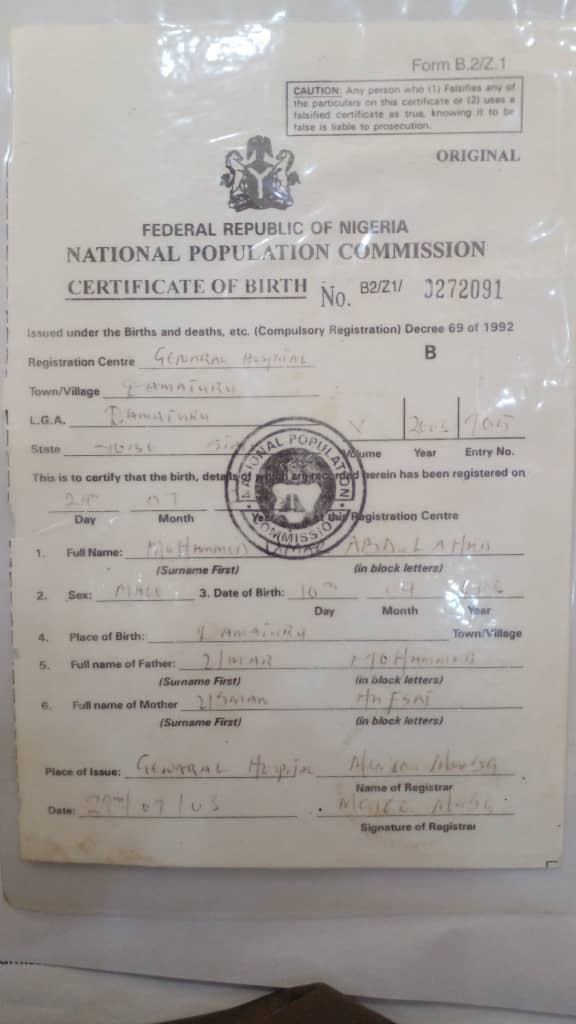 Form B.2/Z.1
CAUTION: Any person who (1) Falsifies any of
the particulars on this certificate or (2) uses a
falsified certificate as true, knowing it to be
false is liable to prosecution.
ORIGINAL
FEDERAL REPUBLIC OF NIGERIA
NATIONAL POPULATION COMMISSION
CERTIFICATE OF BIRTH No. B2/Z1/ 0272091
Issued under the Births and deaths, etc. (Compulsory Registration) Decree 69 of 1992
Registration Centre GENARAL HOSPITAL B
Town/Village DAMATURU
L.G.A. DAMATURU V 2003 905
State YOBE Volume Year Entry No.
NATIONAL POPULATION COMMISSION
This is to certify that the birth, details of which are recorded herein has been registered on
29th 07
Day Month Year at this Registration Centre
1. Full Name: MOHAMMED UMAR
(Surname First) (in block letters)
2. Sex: MALE 3. Date of Birth: 10th 04
Day Month Year
4. Place of Birth: DAMATURU Town/Village
5. Full name of Father: UMAR MOHAMMED
(Surname First) (in block letters)
6. Full name of Mother USMAN HAFSAT
(Surname First) (in block letters)
Place of Issue: GENARAL Hospital
Name of Registrar
Date: 29th/07/03
Signature of Registrar